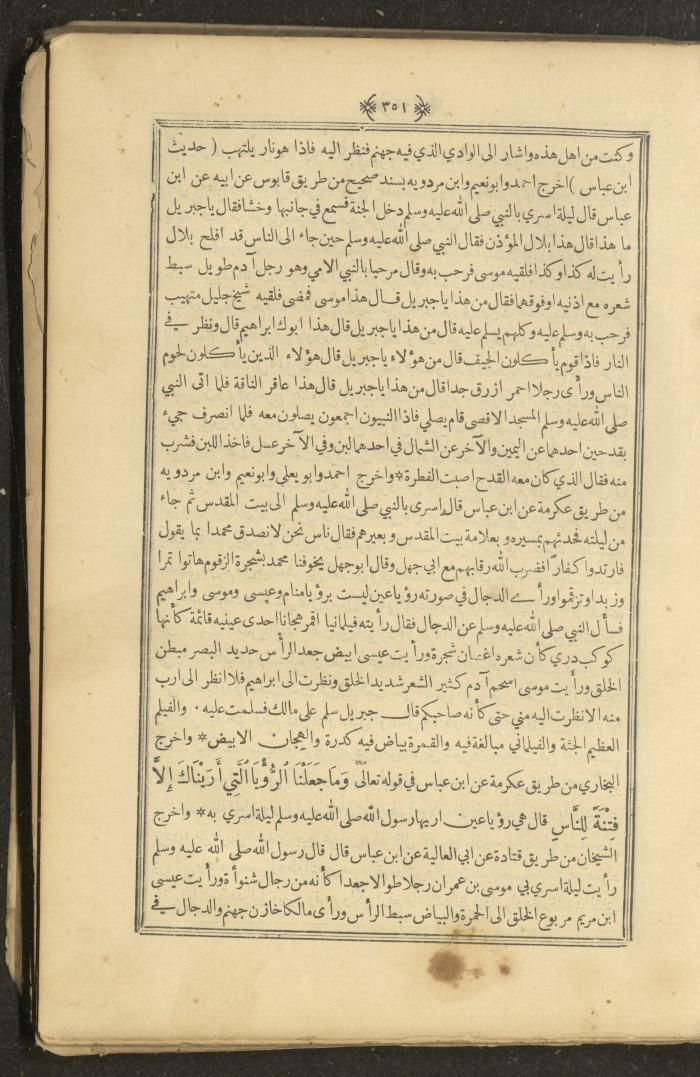 ٣٥١
وكنت من اهل هذه واشار الى الوادي الذي فيه جهنم فنظر اليه فاذا هو نار يلتهب ( حديث
ابن عباس ) اخرج احمد وابو نعيم وابن مردويه بسند صحيح من طريق قابوس عن ابيه عن ابن
عباس قال ليلة اسري بالنبي صلى الله عليه وسلم دخل الجنة فسمع في جانبها وخشا فقال يا جبريل
ما هذا قال هذا بلال المؤذن فقال النبي صلى الله عليه وسلم حين جاء الى الناس قد افلح بلال
رأيت له كذا وكذا فلقيه موسى فرحب به وقال مرحبا بالنبي الامي وهو رجل آدم طويل سبط
شعره مع اذنيه او فوقهما فقال من هذا يا جبريل قال هذا موسى فمضى فلقيه شيخ جليل متهيب
فرحب به وسلم عليه وكلهم يسلم عليه قال من هذا يا جبريل قال هذا ابوك ابراهيم قال ونظر في
النار فاذا قوم يأكلون الجيف قال من هؤلاء يا جبريل قال هؤلاء الذين يأكلون لحوم
الناس ورأى رجلا احمر ازرق جدا قال من هذا يا جبريل قال هذا عاقر الناقة فلما اتى النبي
صلى الله عليه وسلم المسجد الاقصى قام يصلي فاذا النبيون اجمعون يصلون معه فلما انصرف جيء
بقدحين احدهما عن اليمين والآخر عن الشمال في احدهما لبن وفي الآخر عسل فاخذ اللبن فشرب
منه فقال الذي كان معه القدح اصبت الفطرة * واخرج احمد وابو يعلى وابو نعيم وابن مردويه
من طريق عكرمة عن ابن عباس قال اسري بالنبي صلى الله عليه وسلم الى بيت المقدس ثم جاء
من ليلته فحدثهم بمسيره وبعلامة بيت المقدس وبعيرهم فقال ناس نحن لا نصدق محمدا بما يقول
فارتدوا كفاراً فضرب الله رقابهم مع ابي جهل وقال ابو جهل يخوفنا محمد بشجرة الزقوم هاتوا تمرا
وزبدا وتزقموا ورأى الدجال في صورته رؤيا عين ليست برؤيا منام وعيسى وموسى وابراهيم
فسأل النبي صلى الله عليه وسلم عن الدجال فقال رأيته فيلمانيا اقمر هجانا احدى عينيه قائمة كأنها
كوكب دري كأن شعره اغصان شجرة ورأيت عيسى ابيض جعد الرأس حديد البصر مبطن
الخلق ورأيت موسى اسحم آدم كثير الشعر شديد الخلق ونظرت الى ابراهيم فلا انظر الى ارب
منه الا نظرت اليه مني حتى كأنه صاحبكم قال جبريل سلم على مالك فسلمت عليه . والفيلم
العظيم الجثة والفيلماني مبالغة فيه والقمرة بياض فيه كدرة والهجان الابيض * واخرج
البخاري من طريق عكرمة عن ابن عباس في قوله تعالى وَمَا جَعَلْنَا ٱلرُّؤْيَا ٱلَّتِي أَرَيْنَاكَ إِلاَّ
فِتْنَةً لِلنَّاسِ قال هي رؤيا عين اريها رسول الله صلى الله عليه وسلم ليلة اسري به * واخرج
الشيخان من طريق قتادة عن ابي العالية عن ابن عباس قال قال رسول الله صلى الله عليه وسلم
رأيت ليلة اسري بي موسى بن عمران رجلا طوالا جعدا كأنه من رجال شنوأة ورأيت عيسى
ابن مريم مربوع الخلق الى الحمرة والبياض سبط الرأس ورأى مالكا خازن جهنم والدجال في